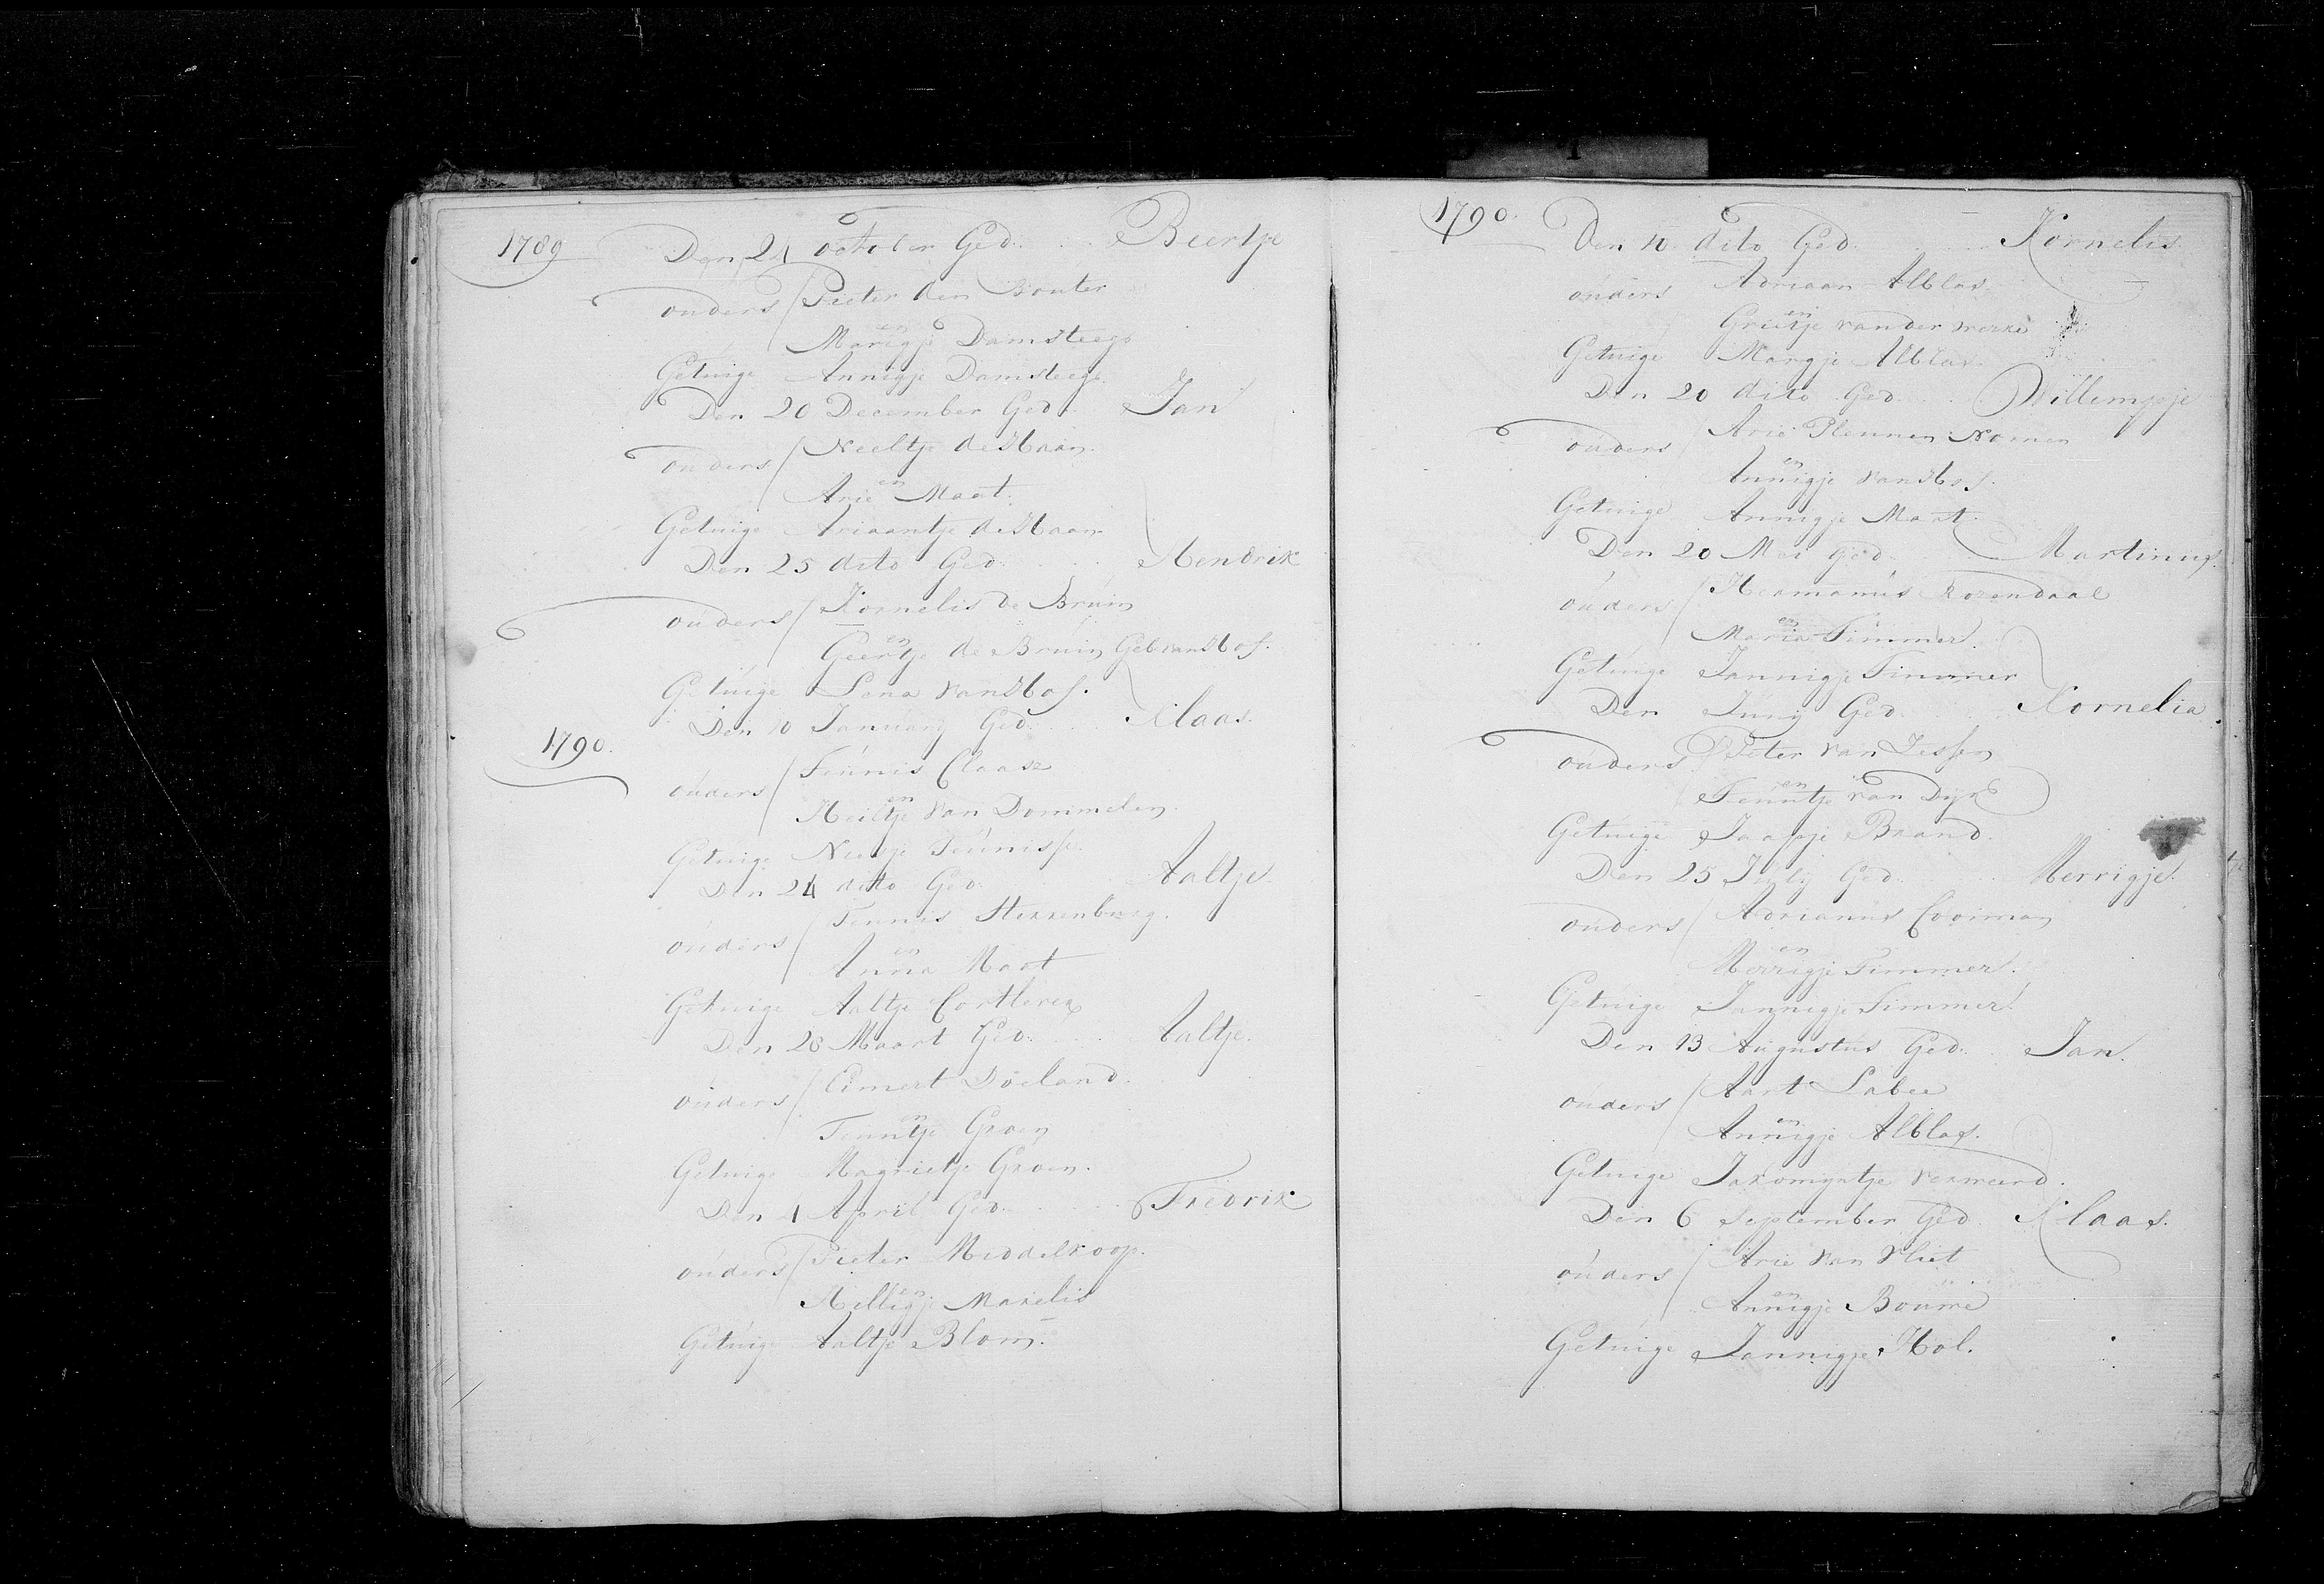 1789 Den 24 october Ged. Beertje
ouders Pieter den Bouter
en
Marigje Damsteegt
Getuige Annigje Damsteegt
Den 20 December Ged. Jan
ouders Neeltje de Haan
en
Arie Maat.
Getuige Ariaantje de Haan
Den 25 dito Ged. Hendrik
ouders Kornelis de Bruin
en
Geertje de Bruin Geb van Hof.
Getuige Lena van Hof.
1790. Den 10 January Ged. Klaas.
ouders Teunis Claase
en
Heiltje van Dommelen.
Getuige Neesje Teunisse
Den 24 dito Ged. Aaltje
ouders Teunis Sterrenburg.
en
Anna Maat
Getuige Aaltje Cortlever
Den 28 Maart Ged. Aaltje.
ouders Eimert Doeland.
en
Teuntje Groen
Getuige Magrietje Groen.
Den 4 April Ged. Fredrik
ouders Pieter Middelkoop.
en
Hilligje Marelis
Getuige Aaltje Blom.
1790. Den 10 dito Ged. Kornelis
ouders Adriaan Alblas
en
Grietje vander
Getuige Margje Alblas.
Den 20 dito Ged. Willempje
ouders Arie Pleunen Noomen
en
Annigje van Hof.
Getuige Annigje Maat.
Den 20 Mei Ged. Martinus.
ouders Hermanus Rozendaal
en
Maria Timmer.
Getuige Jannigje Timmer
Den Juny Ged. Kornelia
ouders Peter van Jessen
en
Teuntje van Dyk
Getuige Jaapje Brand.
Den 25 July Ged. Merrigje.
ouders Adrianus Cooiman
en
Merrigje Timmer.
Getuige Jannigje Timmer.
Den 13 Augustus Ged. Jan.
ouders Aart Labee
en
Annigje Alblas.
Getuige Jakomyntje vermeerd.
Den 6 September Ged. Klaas.
ouders Arie van Vliet
en
Annigje Boume
Getuige Jannigje Hol.